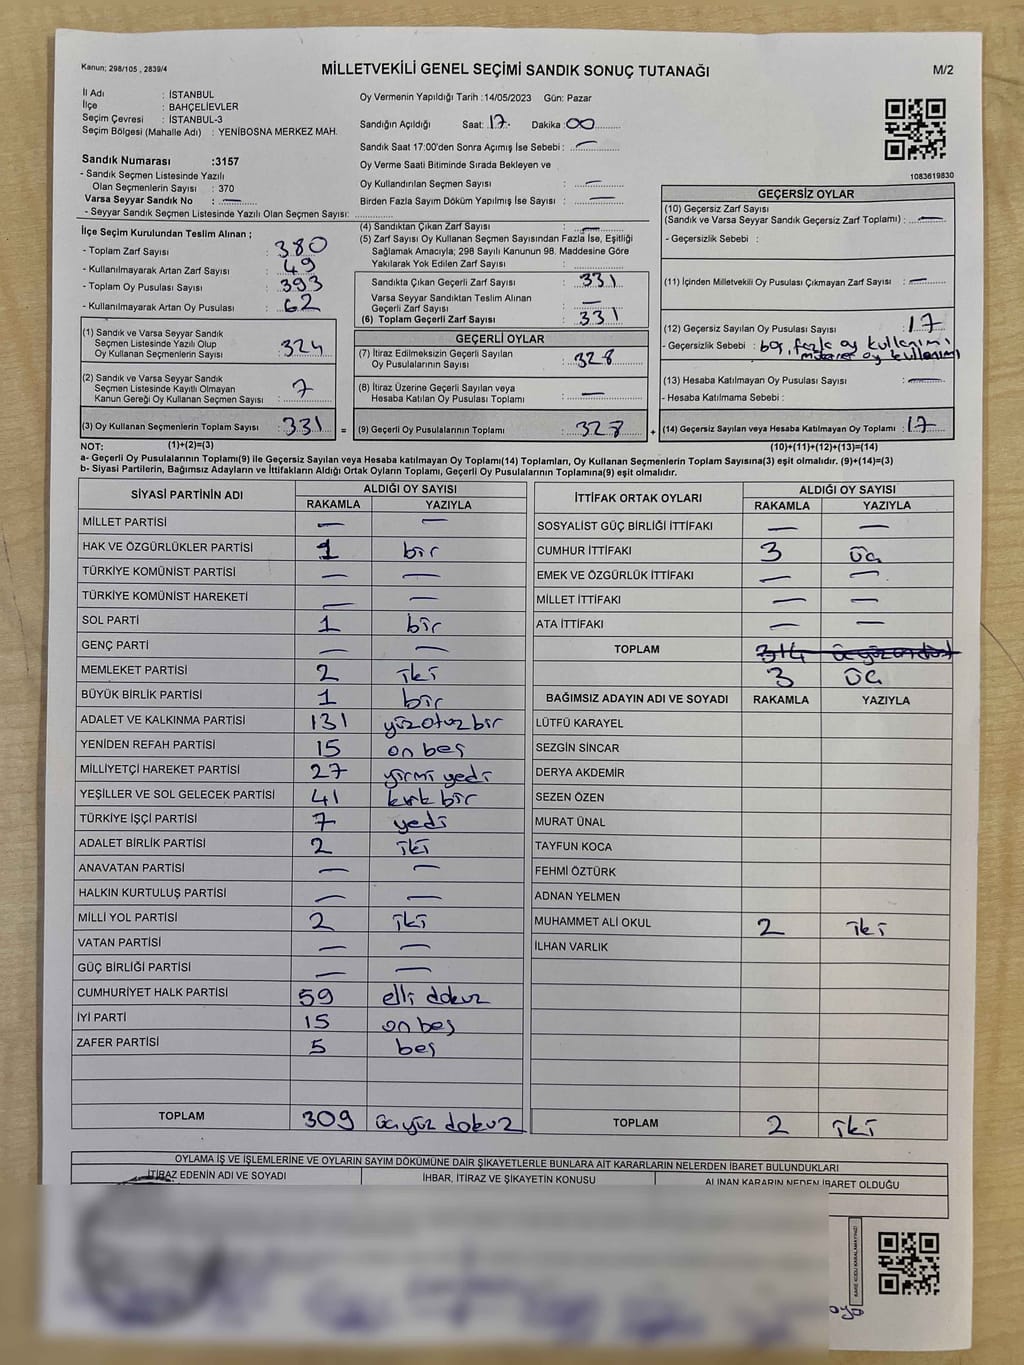 Kanun; 298/105 , 2839/4
MİLLETVEKİLİ GENEL SEÇİMİ SANDIK SONUÇ TUTANAĞI
M/2
İl Adı : İSTANBUL
İlçe : BAHÇELİEVLER
Seçim Çevresi : İSTANBUL-3
Seçim Bölgesi (Mahalle Adı) : YENİBOSNA MERKEZ MAH.
Sandık Numarası :3157
- Sandık Seçmen Listesinde Yazılı
Olan Seçmenlerin Sayısı : 370
Varsa Seyyar Sandık No : —
- Seyyar Sandık Seçmen Listesinde Yazılı Olan Seçmen Sayısı:
Oy Vermenin Yapıldığı Tarih :14/05/2023 Gün: Pazar
Sandığın Açıldığı Saat: 17 Dakika :00
Sandık Saat 17:00'den Sonra Açımış İse Sebebi : —
Oy Verme Saati Bitiminde Sırada Bekleyen ve
Oy Kullandırılan Seçmen Sayısı : —
Birden Fazla Sayım Döküm Yapılmış İse Sayısı : —
1083619830
İlçe Seçim Kurulundan Teslim Alınan ;
- Toplam Zarf Sayısı : 380
- Kullanılmayarak Artan Zarf Sayısı : 49
- Toplam Oy Pusulası Sayısı : 393
- Kullanılmayarak Artan Oy Pusulası : 62
(1) Sandık ve Varsa Seyyar Sandık
Seçmen Listesinde Yazılı Olup
Oy Kullanan Seçmenlerin Sayısı : 324
(2) Sandık ve Varsa Seyyar Sandık
Seçmen Listesinde Kayıtlı Olmayan
Kanun Gereği Oy Kullanan Seçmen Sayısı : 7
(3) Oy Kullanan Seçmenlerin Toplam Sayısı : 331 =
(4) Sandıktan Çıkan Zarf Sayısı : —
(5) Zarf Sayısı Oy Kullanan Seçmen Sayısından Fazla İse, Eşitliği
Sağlamak Amacıyla; 298 Sayılı Kanunun 98. Maddesine Göre
Yakılarak Yok Edilen Zarf Sayısı :
Sandıkta Çıkan Geçerli Zarf Sayısı : 331
Varsa Seyyar Sandıktan Teslim Alınan
Geçerli Zarf Sayısı : —
(6) Toplam Geçerli Zarf Sayısı : 331
GEÇERLİ OYLAR
(7) İtiraz Edilmeksizin Geçerli Sayılan
Oy Pusulalarının Sayısı : 328
(8) İtiraz Üzerine Geçerli Sayılan veya
Hesaba Katılan Oy Pusulası Toplamı : —
(9) Geçerli Oy Pusulalarının Toplamı : 328 +
GEÇERSİZ OYLAR
(10) Geçersiz Zarf Sayısı
(Sandık ve Varsa Seyyar Sandık Geçersiz Zarf Toplamı) : —
- Geçersizlik Sebebi :
(11) İçinden Milletvekili Oy Pusulası Çıkmayan Zarf Sayısı : —
(12) Geçersiz Sayılan Oy Pusulası Sayısı : 17
- Geçersizlik Sebebi : boş, fazla oy kullanımı
oy kullanımı
(13) Hesaba Katılmayan Oy Pusulası Sayısı : —
- Hesaba Katılmama Sebebi :
(14) Geçersiz Sayılan veya Hesaba Katılmayan Oy Toplamı : 17
NOT: (1)+(2)=(3) (10)+(11)+(12)+(13)=(14)
a- Geçerli Oy Pusulalarının Toplamı(9) ile Geçersiz Sayılan veya Hesaba katılmayan Oy Toplamı(14) Toplamları, Oy Kullanan Seçmenlerin Toplam Sayısına(3) eşit olmalıdır. (9)+(14)=(3)
b- Siyasi Partilerin, Bağımsız Adayların ve İttifakların Aldığı Ortak Oyların Toplamı, Geçerli Oy Pusulalarının Toplamına(9) eşit olmalıdır.
SİYASİ PARTİNİN ADI ALDIĞI OY SAYISI
RAKAMLA YAZIYLA
MİLLET PARTİSİ — —
HAK VE ÖZGÜRLÜKLER PARTİSİ 1 bir
TÜRKİYE KOMÜNİST PARTİSİ — —
TÜRKİYE KOMÜNİST HAREKETİ — —
SOL PARTİ 1 bir
GENÇ PARTİ — —
MEMLEKET PARTİSİ 2 iki
BÜYÜK BİRLİK PARTİSİ 1 bir
ADALET VE KALKINMA PARTİSİ 131 yüzotuz bir
YENİDEN REFAH PARTİSİ 15 on beş
MİLLİYETÇİ HAREKET PARTİSİ 27 yirmi yedi
YEŞİLLER VE SOL GELECEK PARTİSİ 41 kırk bir
TÜRKİYE İŞÇİ PARTİSİ 7 yedi
ADALET BİRLİK PARTİSİ 2 iki
ANAVATAN PARTİSİ — —
HALKIN KURTULUŞ PARTİSİ — —
MİLLİ YOL PARTİSİ 2 iki
VATAN PARTİSİ — —
GÜÇ BİRLİĞİ PARTİSİ — —
CUMHURİYET HALK PARTİSİ 59 elli dokuz
İYİ PARTİ 15 on beş
ZAFER PARTİSİ 5 beş
TOPLAM 309 üçyüz dokuz
İTTİFAK ORTAK OYLARI ALDIĞI OY SAYISI
RAKAMLA YAZIYLA
SOSYALİST GÜÇ BİRLİĞİ İTTİFAKI — —
CUMHUR İTTİFAKI 3 üç
EMEK VE ÖZGÜRLÜK İTTİFAKI — —
MİLLET İTTİFAKI — —
ATA İTTİFAKI — —
TOPLAM 314 üçyüzondört
3 üç
BAĞIMSIZ ADAYIN ADI VE SOYADI RAKAMLA YAZIYLA
LÜTFÜ KARAYEL
SEZGİN SİNCAR
DERYA AKDEMİR
SEZEN ÖZEN
MURAT ÜNAL
TAYFUN KOCA
FEHMİ ÖZTÜRK
ADNAN YELMEN
MUHAMMET ALİ OKUL 2 iki
İLHAN VARLIK
TOPLAM 2 iki
OYLAMA İŞ VE İŞLEMLERİNE VE OYLARIN SAYIM DÖKÜMÜNE DAİR ŞİKAYETLERLE BUNLARA AİT KARARLARIN NELERDEN İBARET BULUNDUKLARI
İTİRAZ EDENİN ADI VE SOYADI İHBAR, İTİRAZ VE ŞİKAYETİN KONUSU ALINAN KARARIN NEDEN İBARET OLDUĞU
KARE KODU KARALAMAYINIZ!